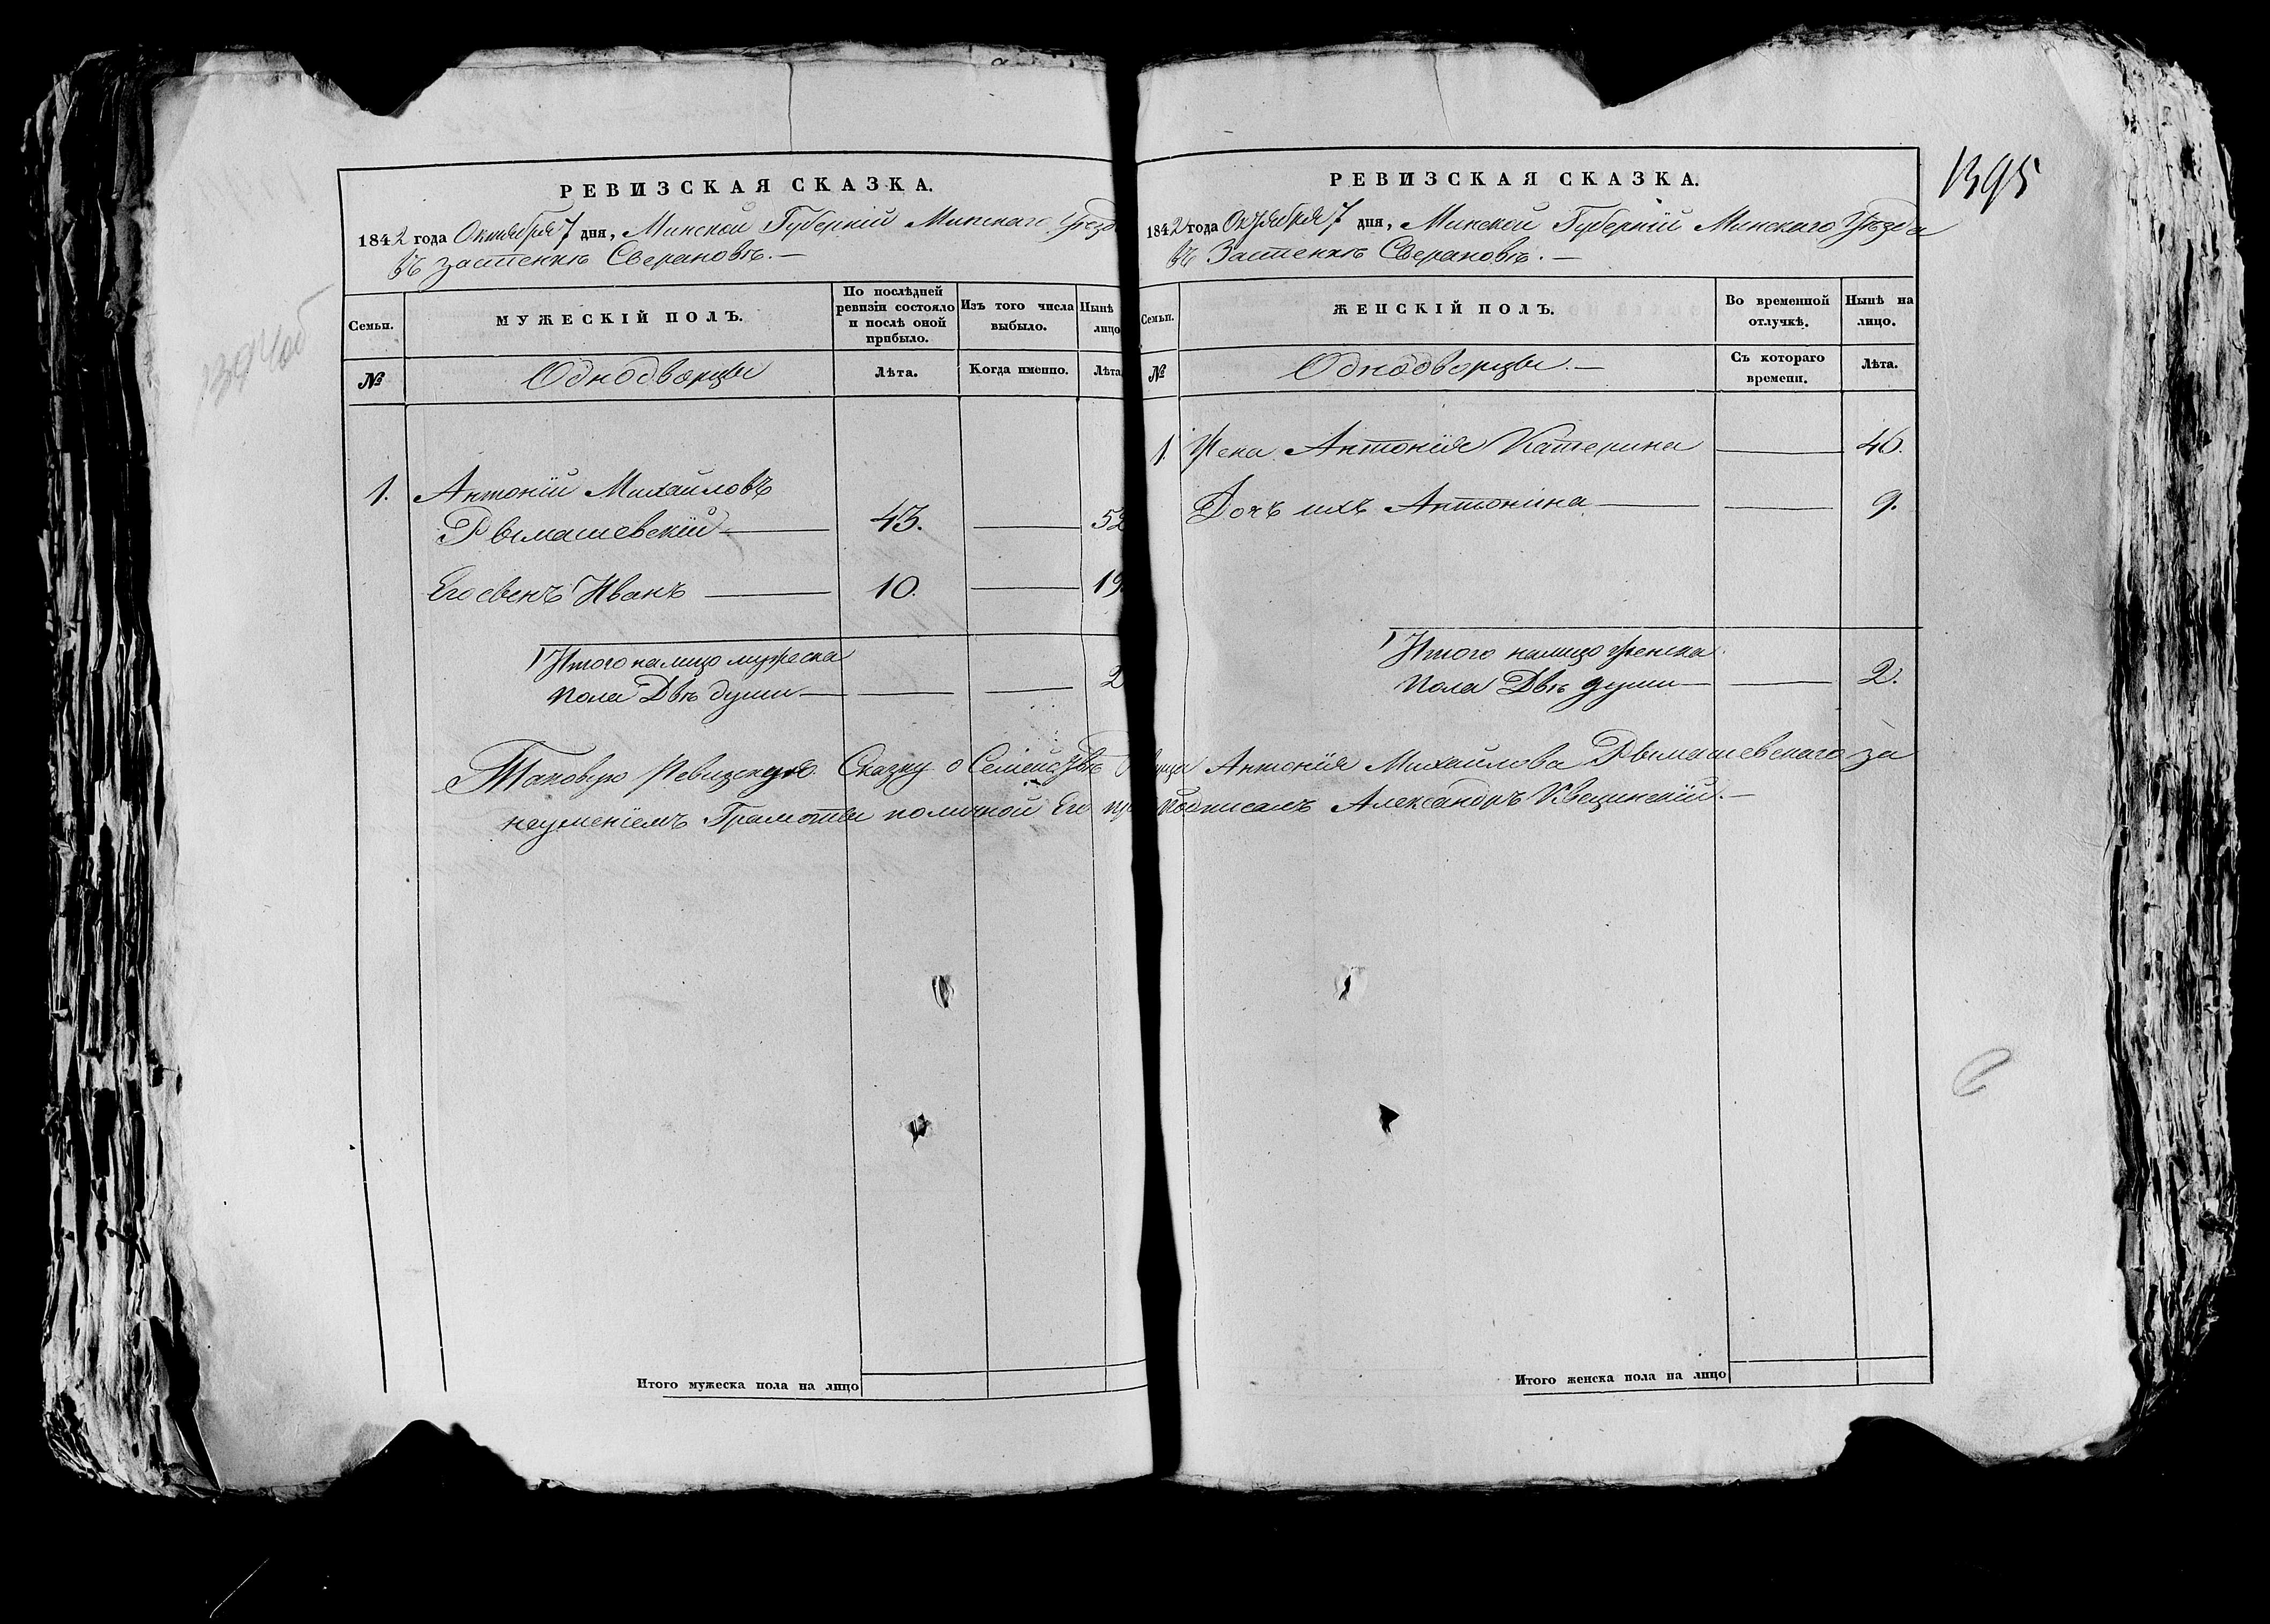 РЕВИЗСКАЯ СКАЗКА.
1842 года Октября 7 дня, Минской Губерніи Минскаго Уѣзд
въ застенкѣ Сверановѣ.—
Семьи.
МУЖЕСКІЙ ПОЛЪ.
По послѣдней ревизіи состояло и послѣ оной прибыло.
Изъ того числа выбыло.
Нынѣ лицо
№
Однодворцы
Лѣта.
Когда именно.
Лѣта
1. Антоній Михайловъ
Рымашевскій — 43. — 52
Его сынъ Иванъ — 10. — 19
Итого налицо мужеска
пола Двѣ души — — — 2
Таковую Ревизскую Сказку о Семействѣ
неуменіемъ Грамоты поличной Его
Итого мужеска пола на лицо
1395
РЕВИЗСКАЯ СКАЗКА.
1842 года Октября 7 дня, Минской Губерніи Минскаго Уѣзда
въ Застенкѣ Сверановѣ.—
Семьи.
ЖЕНСКІЙ ПОЛЪ.
Во временной отлучкѣ.
Нынѣ на лицо.
№
Однодворцы.—
Съ котораго времени.
Лѣта.
1. Жена Антонія Катерина — 46.
Дочь ихъ Антонина — — 9.
Итого налицо женска
пола Двѣ души — — 2.
Антонія Михайлова Рымашевскаго за
подписалъ Александръ Квецинскій.—
Итого женска пола на лицо